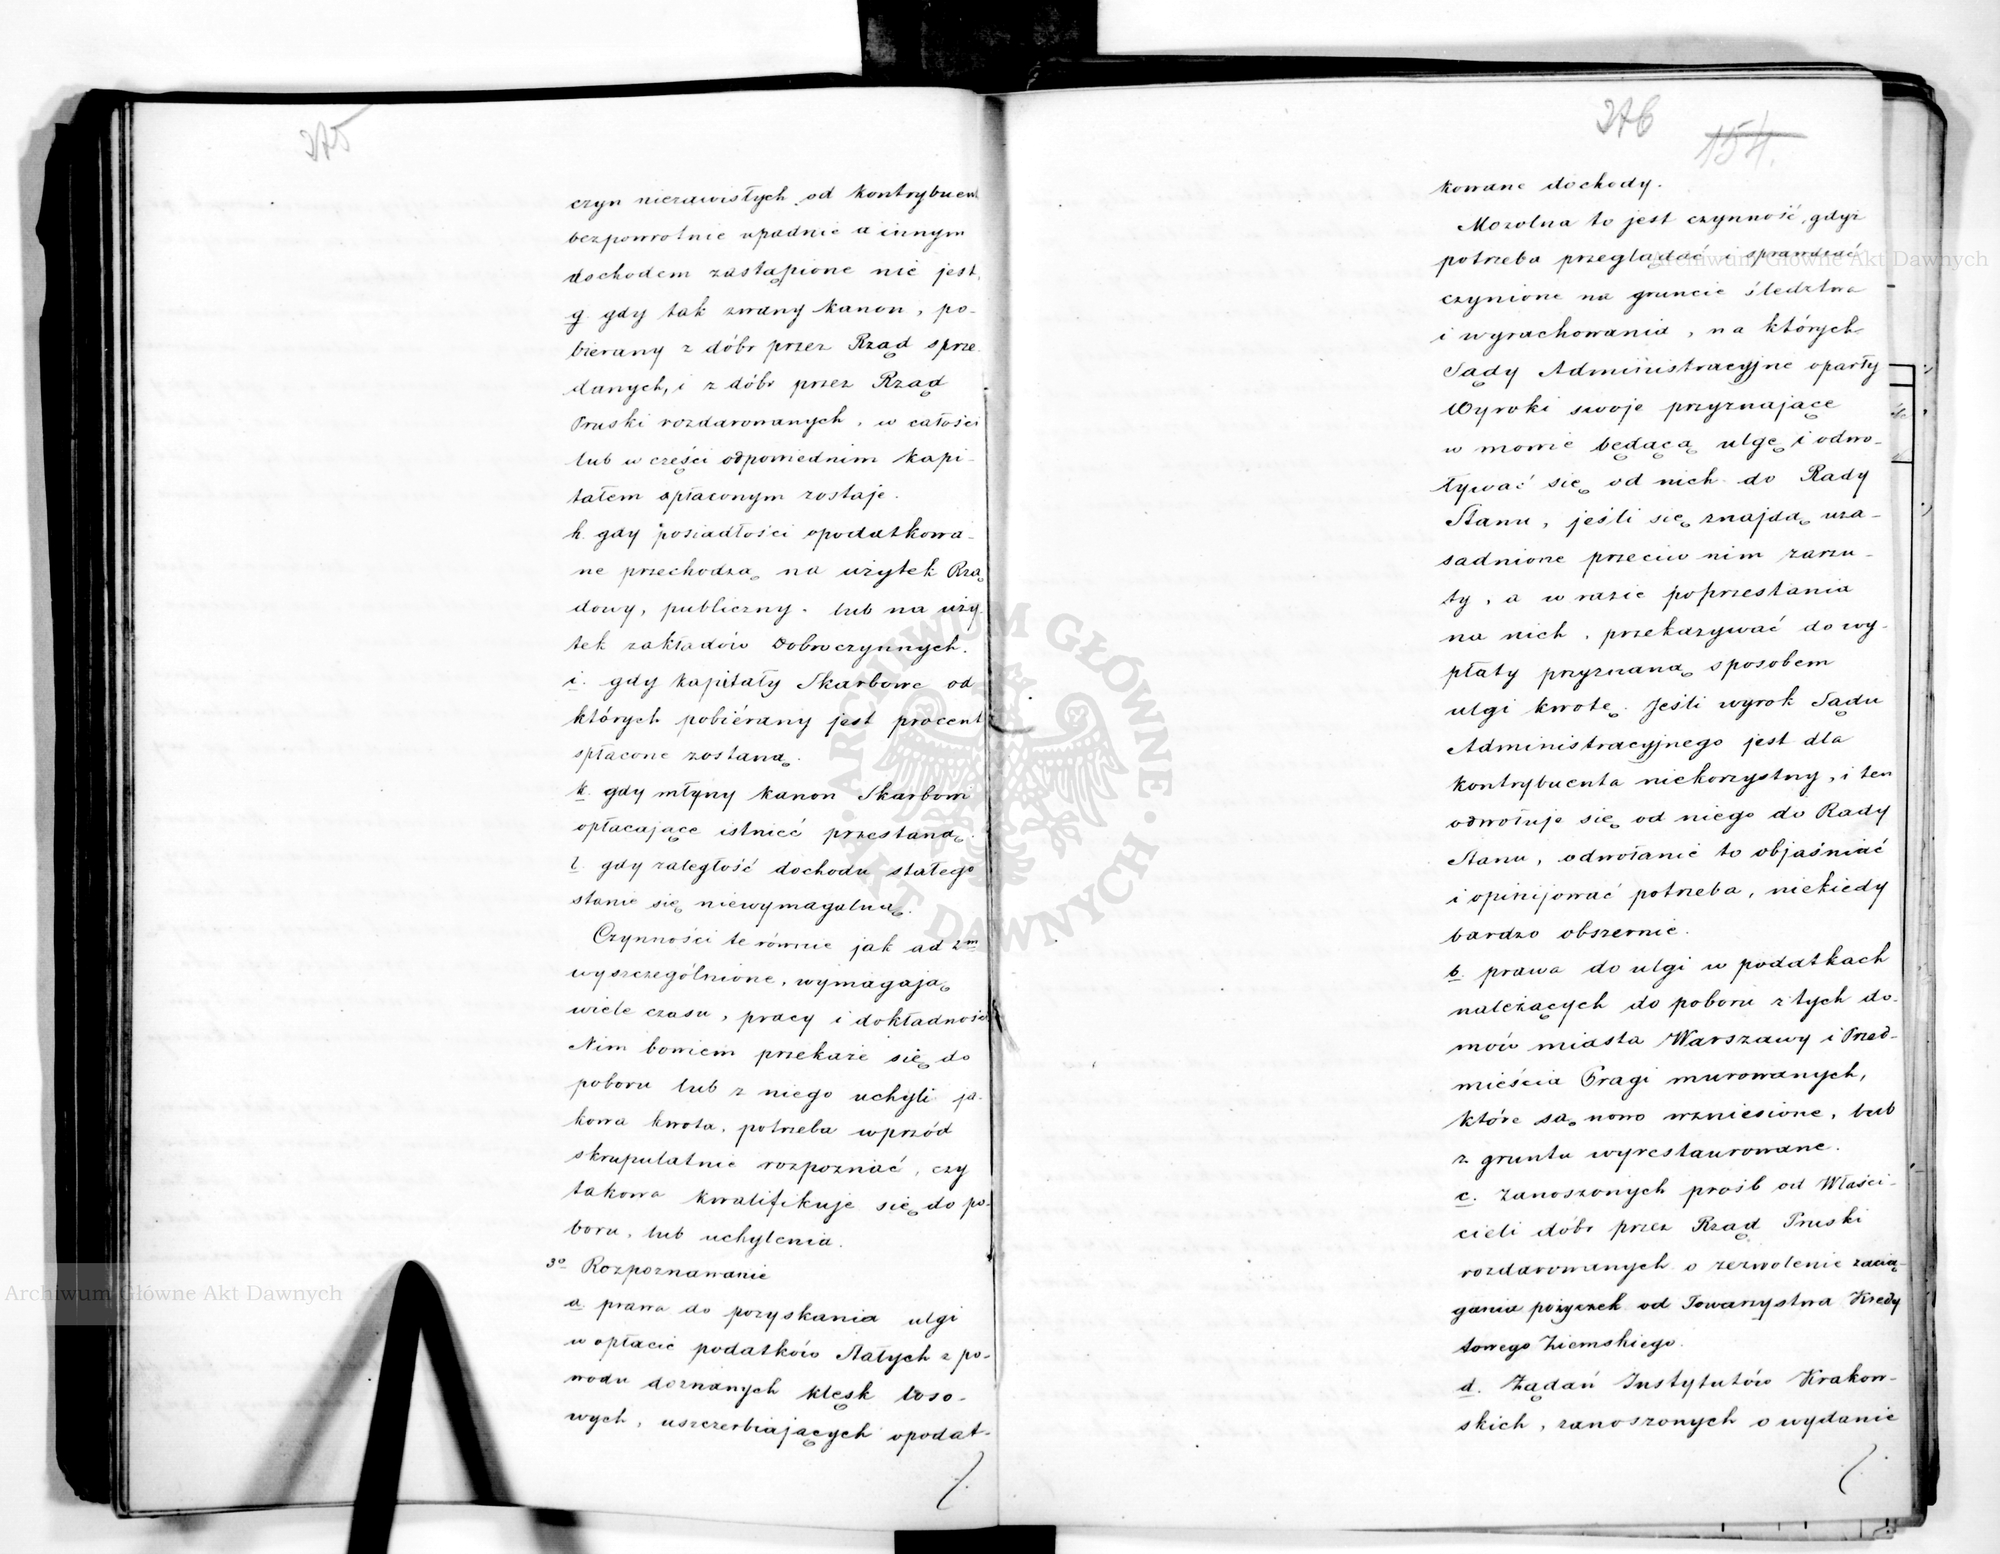 375
czyn niezawisłych od kontrybuen
bezpowrotnie upadnie a innym
dochodem zastąpione nie jest.
g. gdy tak zwany kanon, po-
bierany z dóbr przez Rząd sprze-
danych, i z dóbr przez Rząd
Pruski rozdarowanych, w całości
lub w części odpowiednim kapi-
tałem spłaconym zostaje.
h. gdy posiadłości opodatkowa-
ne przechodzą na użytek Rzą
dowy, publiczny lub na uży-
tek zakładów Dobroczynnych.
i. gdy kapitały Skarbowe od
których pobiérany jest procent
spłacone zostaną.
k. gdy młyny kanon Skarbowi
opłacające istnieć przestaną.
l. gdy zaległość dochodu stałego
stanie się niewymagalną.
Czynności te równie jak ad 2m
wyszczególnione, wymagają
wiele czasu, pracy i dokładności
Nim bowiem przekaże się do
poboru lub z niego uchyli ja-
kowa kwota, potrzeba wprzód
skrupulatnie rozpoznać, czy
takowa kwalifikuje się do po-
boru, lub uchylenia.
3o Rozpoznawanie
a. prawa do pozyskania ulgi
w opłacie podatków Stałych z po-
wodu doznanych klęsk loso-
wych, uszczerbiających opodat-
376
154.
kowane dochody.
Mozolna to jest czynność, gdyż
potrzeba przeglądać i sprawdzać
czynione na gruncie śledztwa
i wyrachowania, na których
Sądy Administracyjne oparły
Wyroki swoje przyznające
w mowie będącą ulgę i odwo-
ływać się od nich do Rady
Stanu, jeśli się znajdą uza-
sadnione przeciw nim zarzu-
ty, a w razie poprzestania
na nich, przekazywać do wy-
płaty przyznaną sposobem
ulgi kwotę. Jeśli wyrok Sądu
Administracyjnego jest dla
kontrybuenta niekorzystny, i ten
odwołuje się od niego do Rady
Stanu, odwołanie to objaśniać
i opinijować potrzeba, niekiedy
bardzo obszernie.
b. prawa do ulgi w podatkach
należących do poboru z tych do-
mów miasta Warszawy i Przed-
mieścia Pragi murowanych,
które są nowo wzniesione, lub
z gruntu wyrestaurowane.
c. zanoszonych próśb od Właści-
cieli dóbr przez Rząd Pruski
rozdarowanych o zezwolenie zacią-
gania pożyczek od Towarzystwa Kredy
towego Ziemskiego.
d. Żądań Instytutów Krakow-
skich, zanoszonych o wydanie
ARCHIWUM GŁÓWNE AKT DAWNYCH
Archiwum Główne Akt Dawnych
Archiwum Główne Akt Dawnych